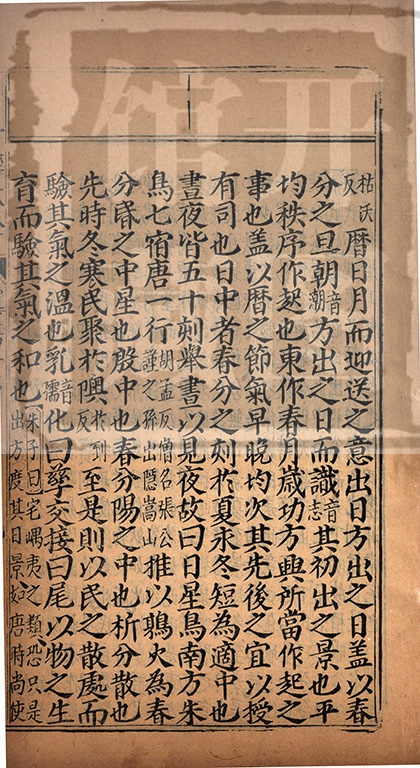 枯沃反曆日月而迎送之意出日方出之日盖以春
分之旦朝音潮方出之日而識音志其初出之景也平
均秩序作起也東作春月歲功方興所當作起之
事也盖以曆之節氣早晚均次其先後之宜以授
有司也日中者春分之刻於夏永冬短為適中也
晝夜皆五十刻舉晝以見夜故曰日星鳥南方朱
鳥七宿唐一行胡孟反僧名張公謹之孫出隱嵩山推以鶉火為春
分昏之中星也殷中也春分陽之中也析分散也
先時冬寒民聚於隩於到反至是則以民之散處而
驗其氣之溫也乳音孺化曰孳交接曰尾以物之生
育而驗其氣之和也朱子曰宅嵎夷之類恐只是出方度其日景如唐時尚使